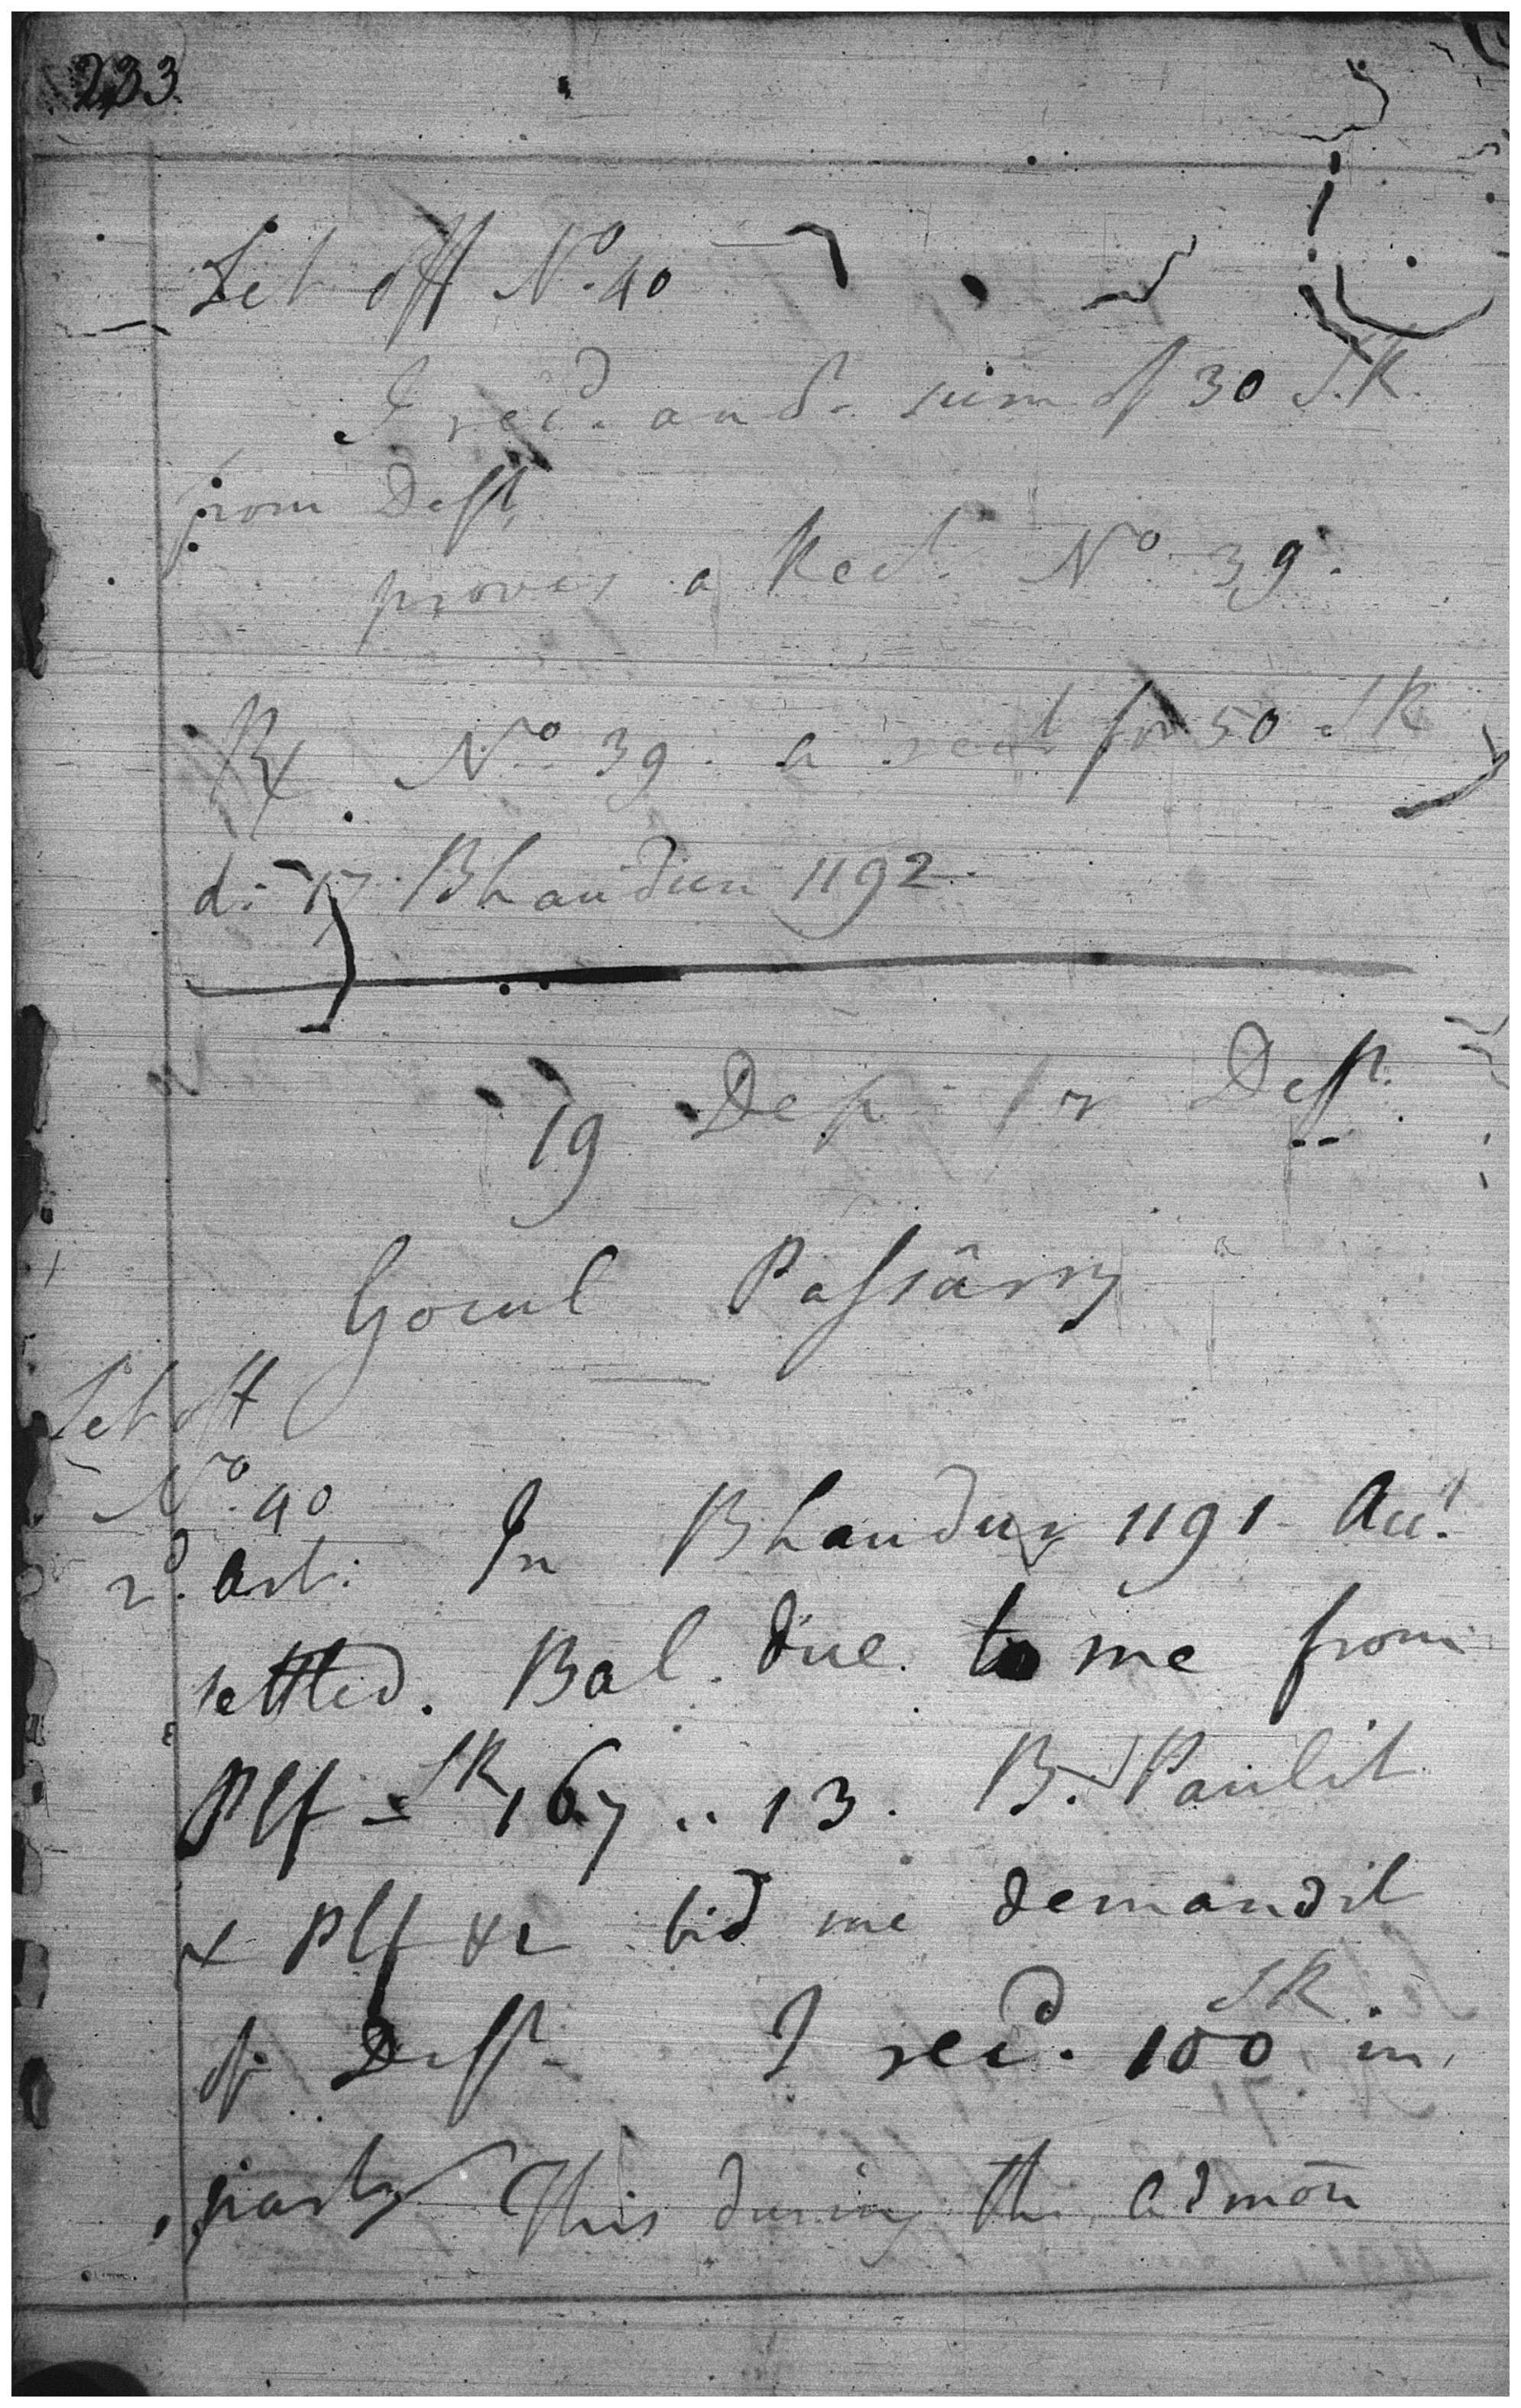 233
Set off No. 40
I recd. and. sum of 30 S.R.
from Deft.
proves a Rect. No 39.
No 39. a rect for 50 SR
d: 17 Bhaudun 1192
19 Dep for Deft.
Gocul Passâry
Set off
No. 40
2d. Art: In Bhaudur 1191 Acct.
settled. Bal. due to me from
Plf SR 167 .. 13. B. Paulit
& Plf &c bid me demand it
of Deft. I recd. SR 100 in
part This during the Admōn